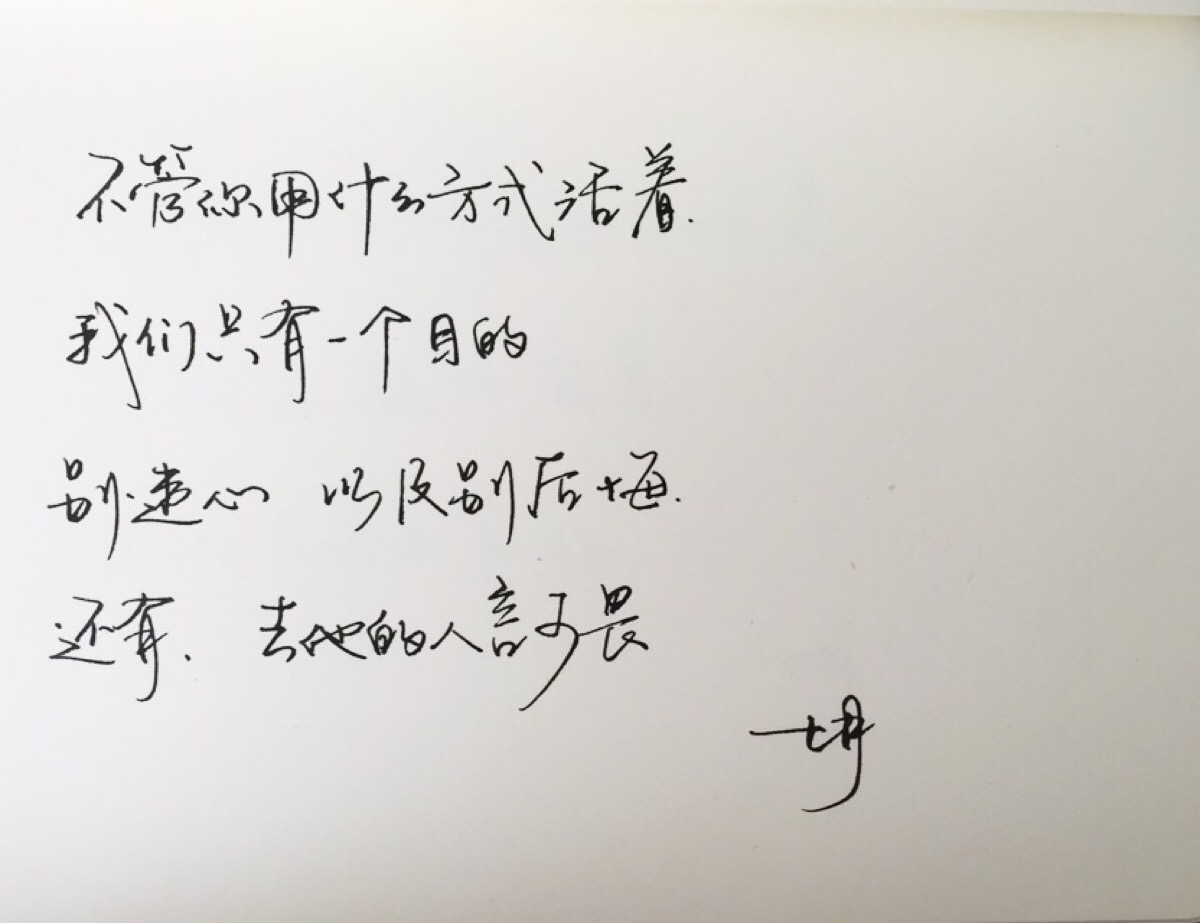 不管你用什么方式活着.
我们只有一个目的
别违心 以及别后悔.
还有、去他的人言可畏